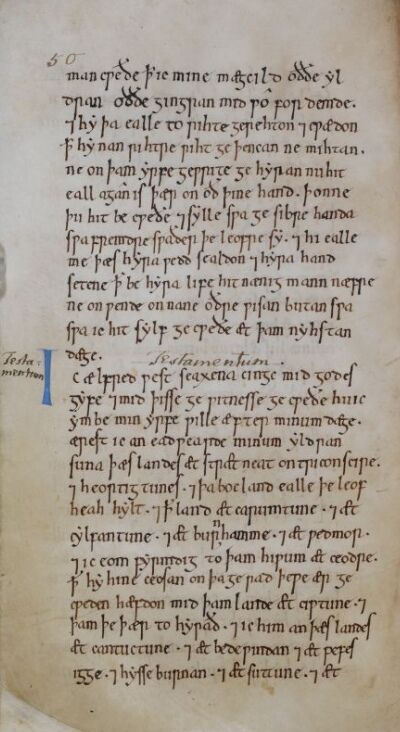 50
man cƿeðe ꝥ ic mine mægcild oððe yl
dran oððe gingran mid ƿo fordemde.
⁊ hy þa ealle to rihte gerehton ⁊ cƿædon
ꝥ hy nan rihtre riht ge þencan ne mihtan.
ne on þam yrfe geƿrite ge hyran nu hit
eall agan is þær on oð þine hand. þonne
þu hit be cƿeðe ⁊ sylle sƿa ge sibre handa
sƿa fremdre sƿaðer þe leofre sy. ⁊ hi ealle
me þæs hyra ƿedd sealdon ⁊ hyra hand
setene ꝥ be hyra life hit nænig mann næfre
ne on ƿende on nane oðre ƿisan butan sƿa
sƿa ic hit sylf ge cƿeðe æt þam nyhstan
dæge.
Testamentum.
Testa-
mentum
Ic ælfred ƿest seaxena cinge mid godes
gyfe ⁊ mid þisse ge ƿitnesse ge cƿeðe hu ic
ymbe min yrfe ƿille æfter minum dæge.
ærest ic an eadƿearde minum yldran
suna þæs landes æt stræt neat on triconscire.
⁊ heortigtunes. ⁊ þa bocland ealle þe leof
heah hylt. ⁊ ꝥ land æt carumtune. ⁊ æt
cylfantune. ⁊ æt burnhamme. ⁊ æt ƿedmor.
⁊ ic eom fyrmdig to þam hiƿum æt ceodre.
ꝥ hy hine ceosan on þa ge rad þe ƿe ær ge
cƿeden hæfdon mid þam lande æt ciƿtune. ⁊
þam þe þær to hyrað. ⁊ ic him an þæs landes
æt cantuctune. ⁊ æt bedeƿindan ⁊ æt pefes
igge. ⁊ hysse burnan. ⁊ æt suttune. ⁊ æt